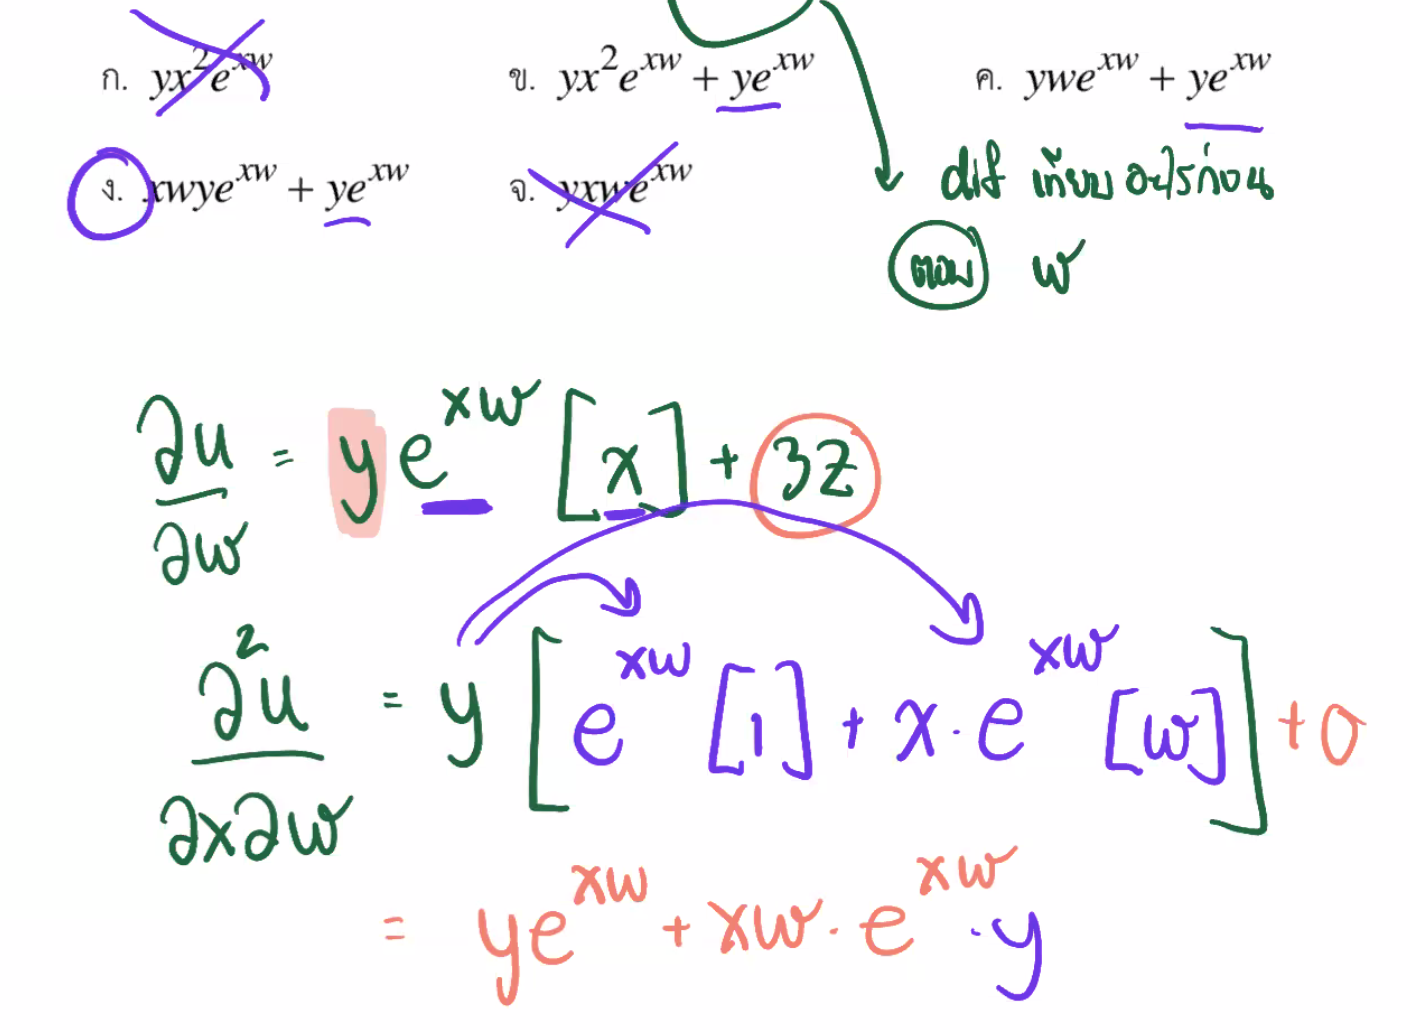 ก. yx²e^{xw} ข. yx²e^{xw} + ye^{xw} ค. ywe^{xw} + ye^{xw}
ง. xwye^{xw} + ye^{xw} จ. yxwe^{xw}
dif เทียบอะไรก่อน
ตอบ w
∂u/∂w = y e^{xw} [x] + 3z
∂²u/∂x∂w = y [e^{xw} [1] + x · e^{xw} [w]] + 0
= ye^{xw} + xw · e^{xw} · y